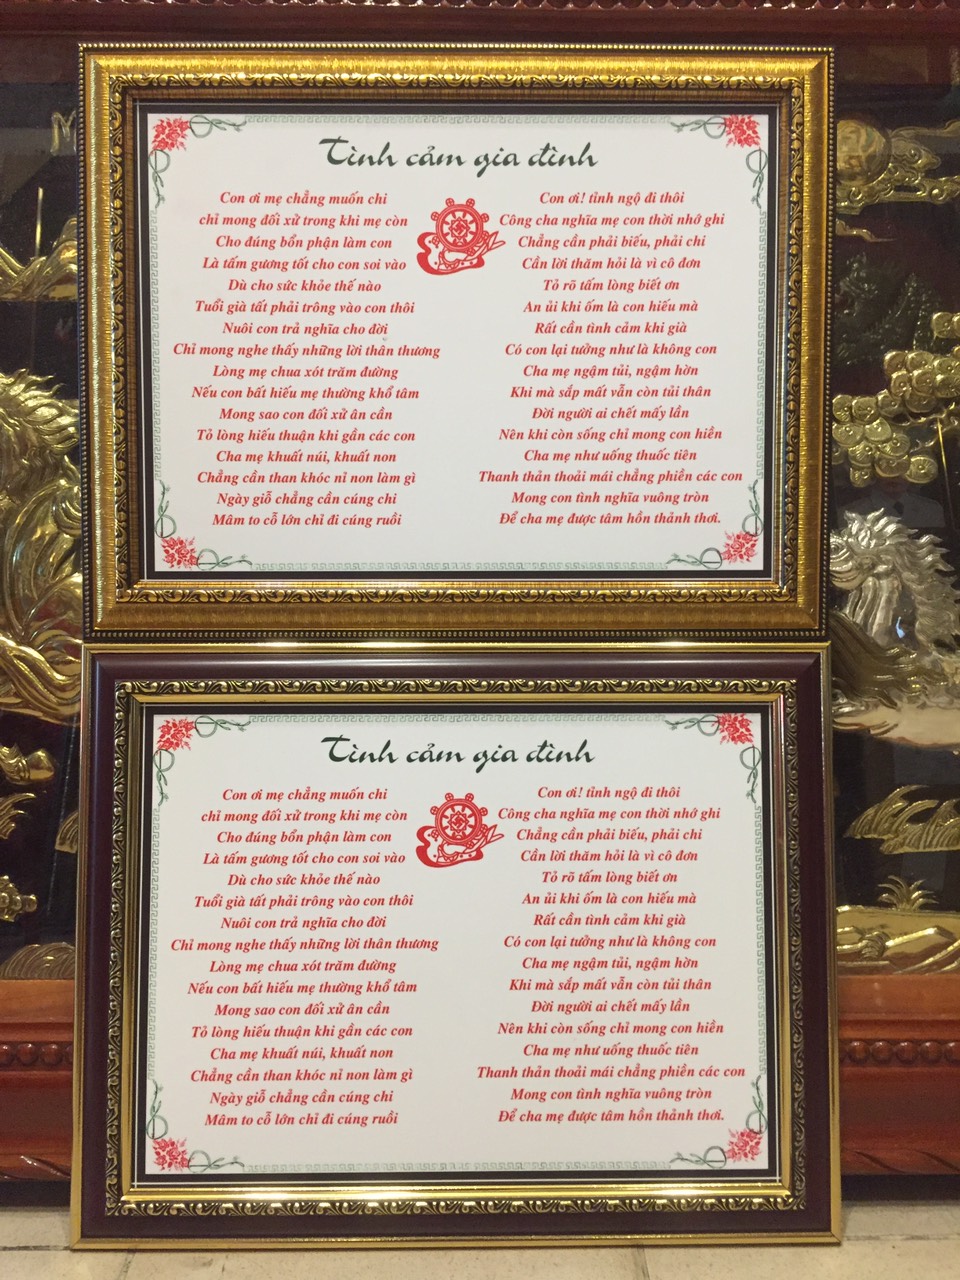 Tình cảm gia đình
Con ơi mẹ chẳng muốn chi
chỉ mong đối xử trong khi mẹ còn
Cho đúng bổn phận làm con
Là tấm gương tốt cho con soi vào
Dù cho sức khỏe thế nào
Tuổi già tất phải trông vào con thôi
Nuôi con trả nghĩa cho đời
Chỉ mong nghe thấy những lời thân thương
Lòng mẹ chua xót trăm đường
Nếu con bất hiếu mẹ thường khổ tâm
Mong sao con đối xử ân cần
Tỏ lòng hiếu thuận khi gần các con
Cha mẹ khuất núi, khuất non
Chẳng cần than khóc nỉ non làm gì
Ngày giỗ chẳng cần cúng chi
Mâm to cỗ lớn chỉ đi cúng ruồi
Con ơi! tỉnh ngộ đi thôi
Công cha nghĩa mẹ con thời nhớ ghi
Chẳng cần phải biếu, phải chi
Cần lời thăm hỏi là vì cô đơn
Tỏ rõ tấm lòng biết ơn
An ủi khi ốm là con hiếu mà
Rất cần tình cảm khi già
Có con lại tưởng như là không con
Cha mẹ ngậm tủi, ngậm hờn
Khi mà sắp mất vẫn còn tủi thân
Đời người ai chết mấy lần
Nên khi còn sống chỉ mong con hiền
Cha mẹ như uống thuốc tiên
Thanh thản thoải mái chẳng phiền các con
Mong con tình nghĩa vuông tròn
Để cha mẹ được tâm hồn thảnh thơi.
Tình cảm gia đình
Con ơi mẹ chẳng muốn chi
chỉ mong đối xử trong khi mẹ còn
Cho đúng bổn phận làm con
Là tấm gương tốt cho con soi vào
Dù cho sức khỏe thế nào
Tuổi già tất phải trông vào con thôi
Nuôi con trả nghĩa cho đời
Chỉ mong nghe thấy những lời thân thương
Lòng mẹ chua xót trăm đường
Nếu con bất hiếu mẹ thường khổ tâm
Mong sao con đối xử ân cần
Tỏ lòng hiếu thuận khi gần các con
Cha mẹ khuất núi, khuất non
Chẳng cần than khóc nỉ non làm gì
Ngày giỗ chẳng cần cúng chi
Mâm to cỗ lớn chỉ đi cúng ruồi
Con ơi! tỉnh ngộ đi thôi
Công cha nghĩa mẹ con thời nhớ ghi
Chẳng cần phải biếu, phải chi
Cần lời thăm hỏi là vì cô đơn
Tỏ rõ tấm lòng biết ơn
An ủi khi ốm là con hiếu mà
Rất cần tình cảm khi già
Có con lại tưởng như là không con
Cha mẹ ngậm tủi, ngậm hờn
Khi mà sắp mất vẫn còn tủi thân
Đời người ai chết mấy lần
Nên khi còn sống chỉ mong con hiền
Cha mẹ như uống thuốc tiên
Thanh thản thoải mái chẳng phiền các con
Mong con tình nghĩa vuông tròn
Để cha mẹ được tâm hồn thảnh thơi.